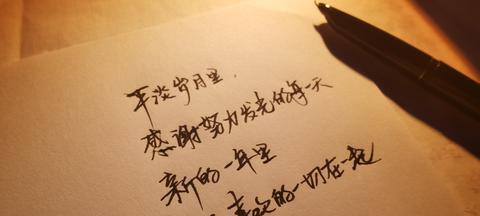 平淡岁月里，
感谢努力发光的每一天
新的一年里
喜欢的一切在一起